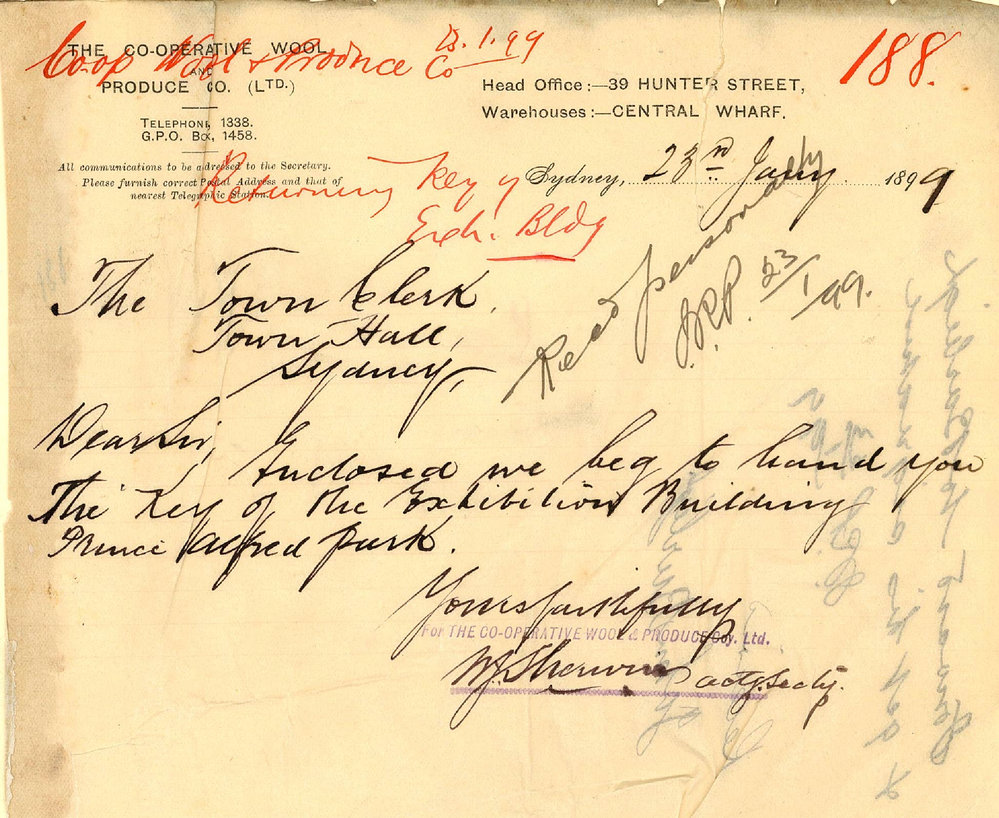 THE CO-OPERATIVE WOOL
AND
PRODUCE CO. (LTD.)
TELEPHONE, 1338.
G.P.O. BOX, 1458.
All communications to be adressed to the Secretary.
Please furnish correct Postal Address and that of
nearest Telegraphic Station.
Co-op Wool & Produce Co
.1.99
188.
Head Office:—39 HUNTER STREET,
Warehouses:—CENTRAL WHARF.
Returning Key of
Exh. Bldg
Sydney, 23rd Jany 1899
Recd personally
23/1/99.
The Town Clerk,
Town Hall,
Sydney,
Dear Sir,
Enclosed we beg to hand you
The Key of the Exhibition Building
Prince Alfred Park.
Yours faithfully
For THE CO-OPERATIVE WOOL & PRODUCE Coy. Ltd.
W.J. Sherwin actg. Secty.